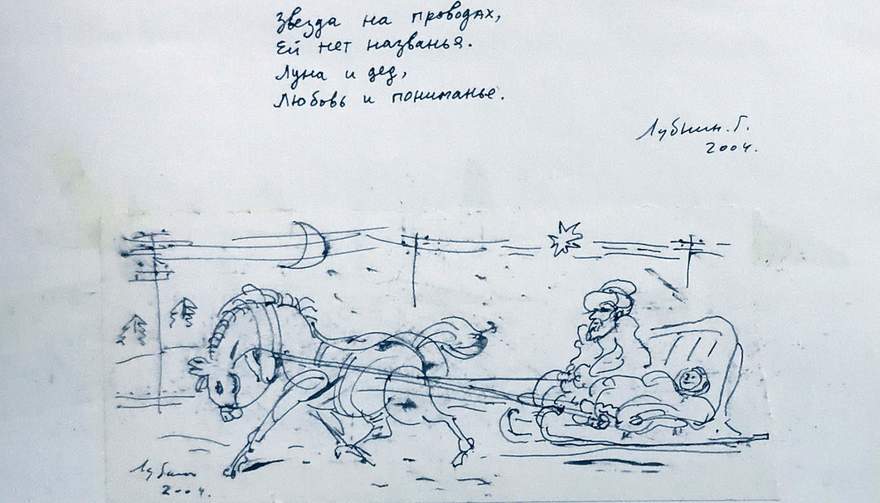 Звезда на проводах,
Ей нет названья.
Луна и дед,
Любовь и пониманье.
Лубнин. Г.
2004.
Лубнин
2004.